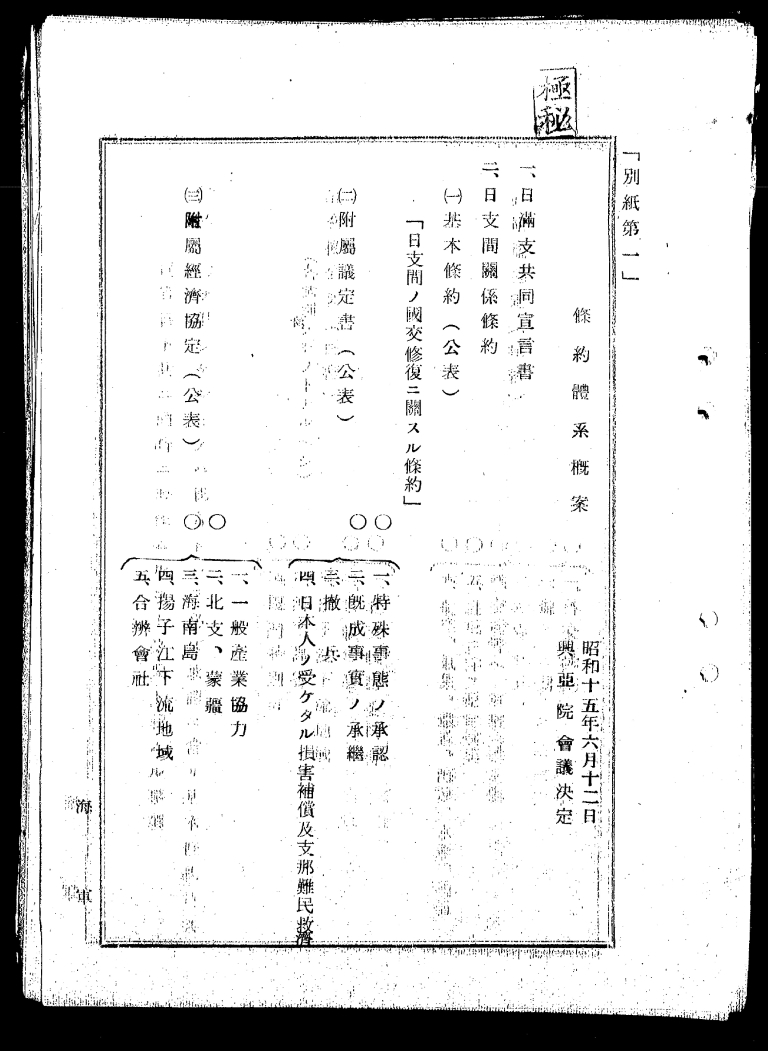 極秘
「別紙第一」
條約體系概案
昭和十五年六月十二日
興亞院會議決定
一、日滿支共同宣言書
二、日支間關係條約
㈠基本條約(公表)
「日支間ノ國交修復ニ關スル條約」
㈡附屬議定書(公表)
○一、特殊事態ノ承認
○二、旣成事實ノ承繼
三、撤兵
四、日本人ノ受ケタル損害補償及支那難民救濟
㈢附屬經濟協定(公表)
一、一般產業協力
○二、北支、蒙疆
○三、海南島
四、揚子江下流地域
五、合辨會社
海軍